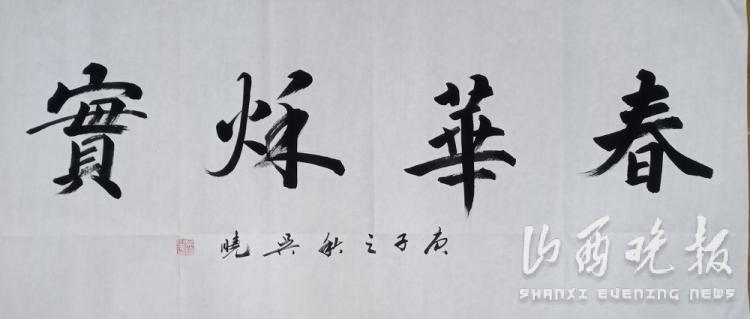 春華秌實
庚子之秋吴曉
山西晚报
SHANXI EVENING NEWS